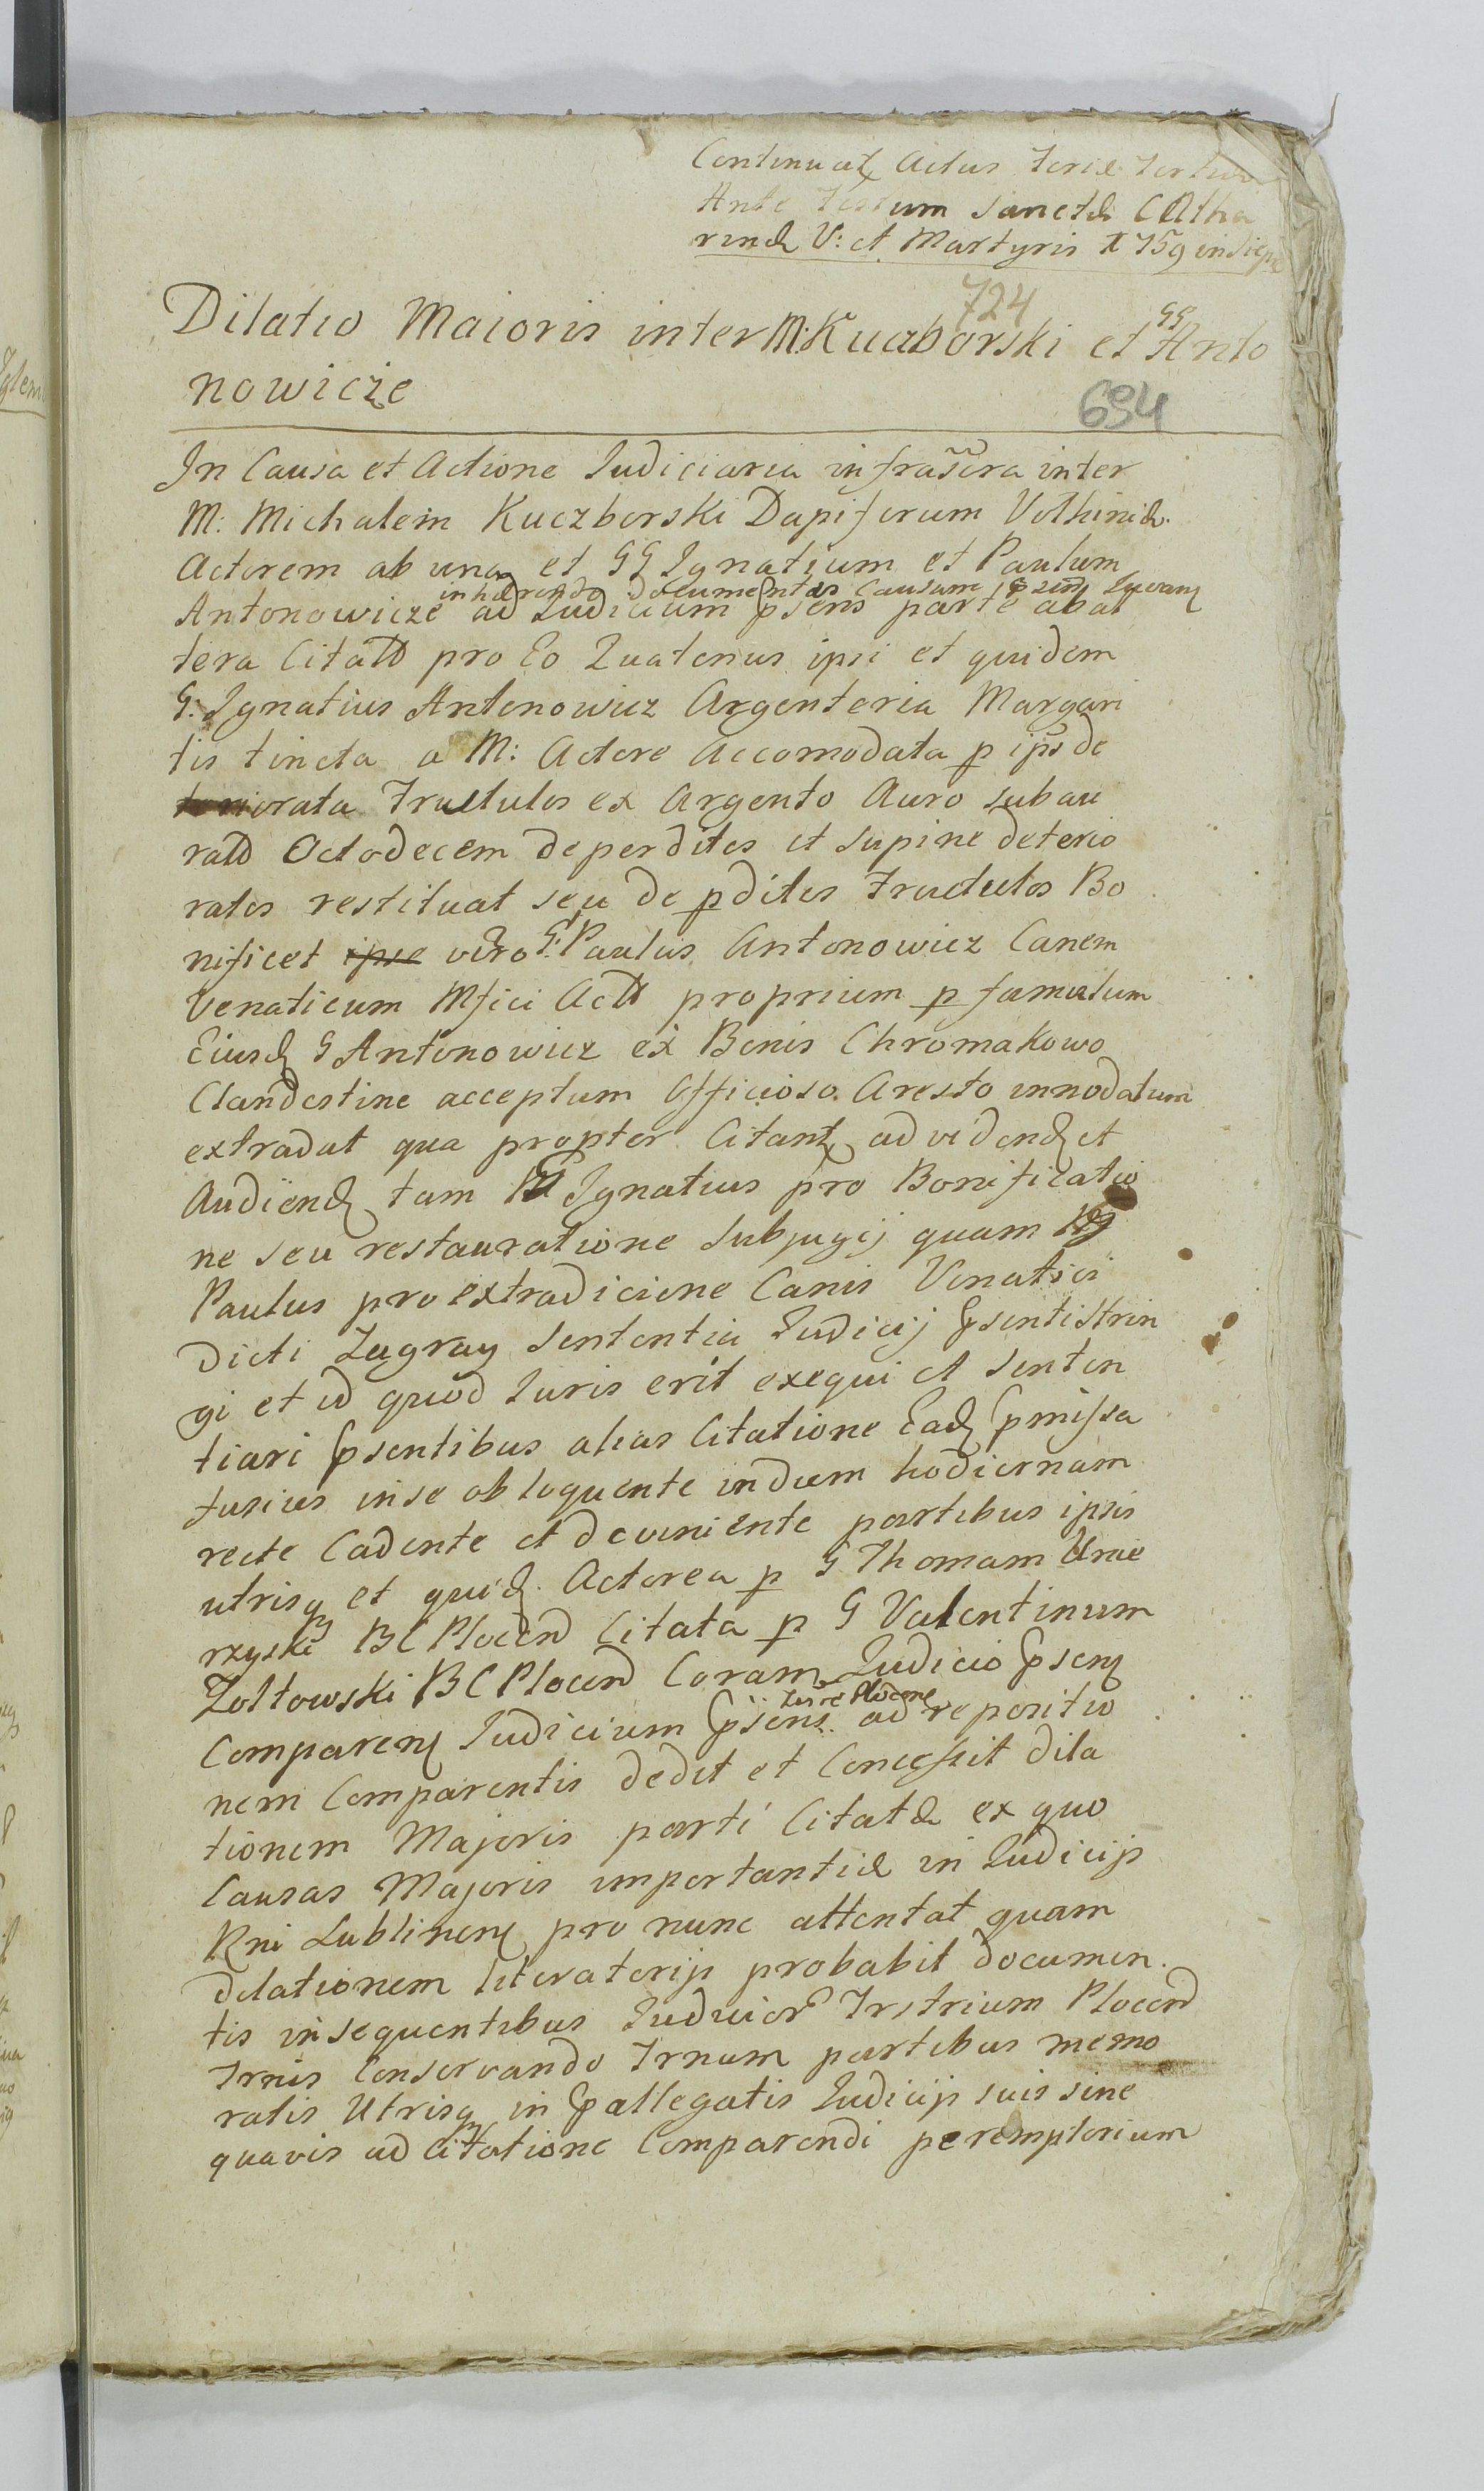 Continuat Actus Feriæ Tertia
Ante Festum Sanctæ Catha
rinæ V: et Martyris 1759
724
Dilatio Maioris inter M: Kuczborski et GG Anto
nowicze
694
In Causa et Actione Judiciaria infrascra inter
M: Michalem Kuczborski Dapiferum Volhiniæ
Actorem ab una et GG Ignatium et Paulum
inhærendo documentis Causam
Antonowicze ad Judicium psens parte ab al
tera Citatt pro Eo Quatenus ipsi et quidem
G: Ignatius Antonowicz Argenteria Margari
tis tincta a M: Actore Accomodata p ips de
teriorata Frustulos ex Argento Auro subau
ratt Octodecem deperditos et supine deterio
ratos restituat seu de pditos Frustulos Bo
nificet ipse vero G: Paulus Antonowicz Canem
Venaticum Mfici Actt proprium p famulum
Eiusd G Antonowicz ex Bonis Chromakowo
Clandestine acceptum Officioso Aresto innodatum
extradat qua propter Citant ad vidend et
Audiend tam G Ignatius pro Bonificatio
ne seu restauratione Subjugij quam
Paulus pro extradicione Canis Venatici
dicti Zagray Sententia Judicij psenti strin
gi et id quod Juris erit exequi et senten
tiari psentibus alias Citatione Ead pmissa
fusius in se obloquente in diem hodiernam
recte Cadente et deveniente partibus ipsis
utrisq et quid. Actorea p G Thomam Umie
rzyski BC Plocen Citata p G Valentinum
Zoltowski BC Plocen Coram Judicio psen
Terre Plocen
Comparen Judicium psens ad repositio
nem Comparentis dedit et Concessit dila
tionem Majoris parti Citatæ ex quo
Causas Majoris importantiæ in Judicijs
Rni Lublinen pro nunc attentat quam
dilationem literatorijs probabit documen
tis insequentibus Judicior Trstrium Plocen
Trnis Conservando Trnum partibus memo
ratis Utrisq in pallegatis Judicijs suis sine
quavis adcitatione Comparendi peremptorium